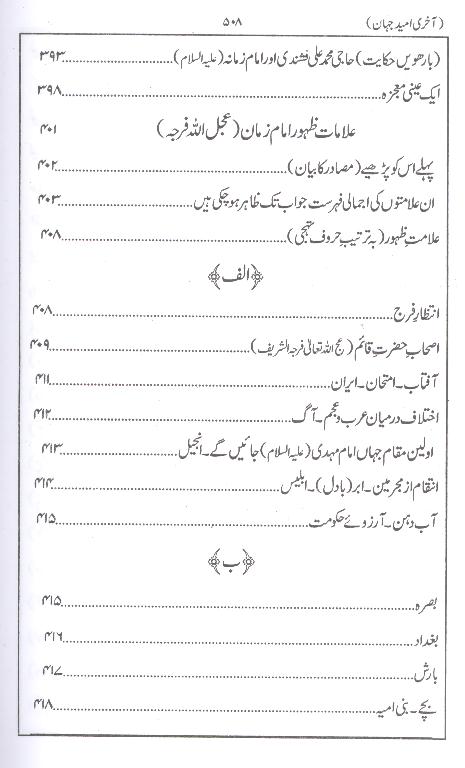 (آخری امید جہان) ۵۰۸
(بارھویں حکایت) حاجی محمد علی فشندی اور امام زمانہ (علیہ السلام) ۳۹۳
ایک عینی معجزہ ۳۹۸
علامات ظہور امام زمان (عجل اللہ فرجہ) ۴۰۱
پہلے اس کو پڑھیے (مصادر کا بیان) ۴۰۲
ان علامتوں کی اجمالی فہرست جو اب تک ظاہر ہو چکی ہیں ۴۰۳
علامتِ ظہور (بہ ترتیب حروف تہجی) ۴۰۸
﴿الف﴾
انتظار فرج ۴۰۸
اصحاب حضرت قائم (عج اللہ تعالیٰ فرجہ الشریف) ۴۰۹
آفتاب۔ امتحان۔ ایران ۴۱۱
اختلاف درمیان عرب و عجم۔ آگ ۴۱۲
اولین مقام جہاں امام مہدی (علیہ السلام) جائیں گے۔ انجیل ۴۱۳
انتقام از مجرمین۔ ابر (بادل)۔ ابلیس ۴۱۴
آب دہن۔ آرزوئے حکومت ۴۱۵
﴿ب﴾
بصرہ ۴۱۵
بغداد ۴۱۶
بارش ۴۱۷
بچے۔ بنی امیہ ۴۱۸